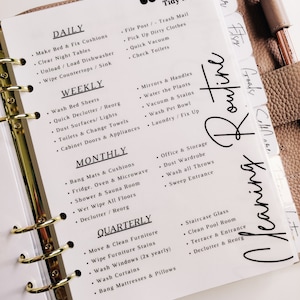 Tidy
DAILY
• Make Bed & Fix Cushions
• Clear Night Tables
• Unload / Load Dishwasher
• Wipe Countertops / Sink
• File Post / Trash Mail
• Pick Up Dirty Clothes
• Quick Vacuum
• Check Toilets
WEEKLY
• Wash Bed Sheets
• Quick Declutter / Reorg
• Dust Surfaces/ Lights
• Toilets & Change Towels
• Cabinet Doors & Appliances
• Mirrors & Handles
• Water the Plants
• Vacuum & Stairs
• Wash Pet Bowl
• Laundry / Fix Up
MONTHLY
• Bang Mats & Cushions
• Fridge, Oven & Microwave
• Shower & Sauna Room
• Wet Wipe All Floors
• Declutter / Reorg
• Office & Storage
• Dust Wardrobe
• Wash all Throws
• Sweep Entrance
QUARTERLY
• Move & Clean Furniture
• Wipe Furniture Stains
• Wash Windows (2x yearly)
• Wash Curtains
• Bang Mattresses & Pillows
• Staircase Glass
• Clean Pool Room
• Terrace & Entrance
• Declutter & Reorg
Cleaning Routine